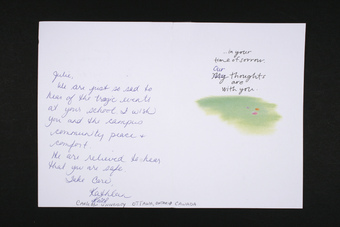 Julie,
We are just so sad to
hear of the tragic events
at your school. I wish
you and the campus
community peace &
comfort.
We are relieved to hear
that you are safe.
Take Care,
Kathleen
University OTTAWA, CANADA
in your
time of sorrow.
Our
My thoughts
are
with you.